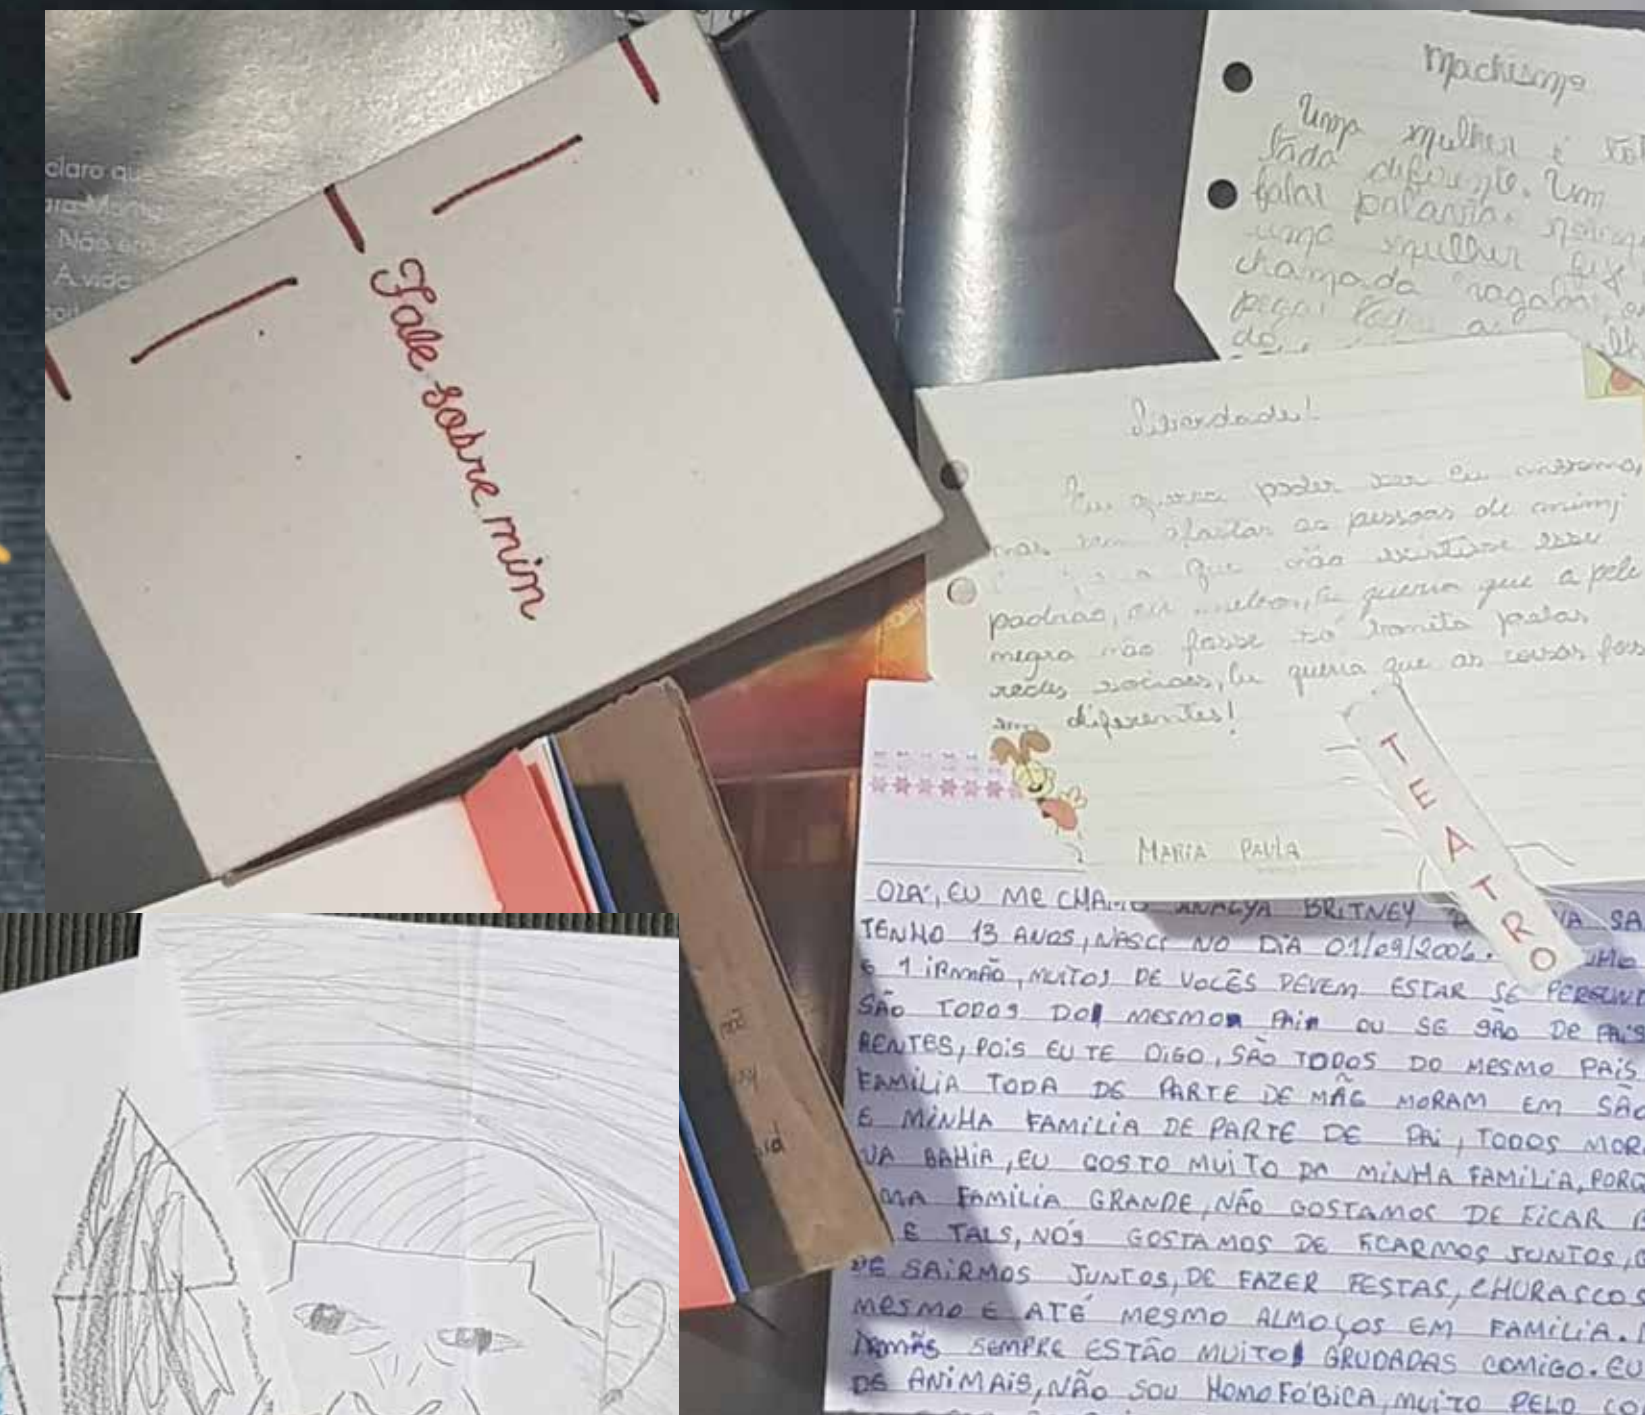 claro que
Não era
A vida
Fale sobre mim
Machismo
Uma mulher é
tada diferente. Um
falar palavrão
uma mulher fez
chamada
pegar
do
Liberdade!
Eu queria poder ser eu mesma,
mas sem afastar as pessoas de mim;
que não existisse esse
padrão, ou melhor, Eu queria que a pele
negra não fosse só bonita pelas
redes sociais, Eu queria que as coisas foss
em diferentes!
MARIA PAULA
TEATRO
OLÁ, EU ME CHAMO ANALYA BRITNEY SA
TENHO 13 ANOS, NASCI NO DIA 01/09/2006.
E 1 IRMÃO, MUITOS DE VOCÊS DEVEM ESTAR SE PERGUNT
SÃO TODOS DO MESMO PAI OU SE SÃO DE PAIS
RENTES, POIS EU TE DIGO, SÃO TODOS DO MESMO PAIS
FAMÍLIA TODA DE PARTE DE MÃE MORAM EM SÃO
E MINHA FAMÍLIA DE PARTE DE PAI, TODOS MOR
NA BAHIA, EU GOSTO MUITO DA MINHA FAMÍLIA, PORQ
UMA FAMÍLIA GRANDE, NÃO GOSTAMOS DE FICAR
E TALS, NÓS GOSTAMOS DE FICARMOS JUNTOS,
DE SAIRMOS JUNTOS, DE FAZER FESTAS, CHURASCOS
MESMO E ATÉ MESMO ALMOÇOS EM FAMÍLIA.
IRMÃS SEMPRE ESTÃO MUITO GRUDADAS COMIGO. EU
DE ANIMAIS, NÃO SOU HOMOFÓBICA, MUITO PELO CO